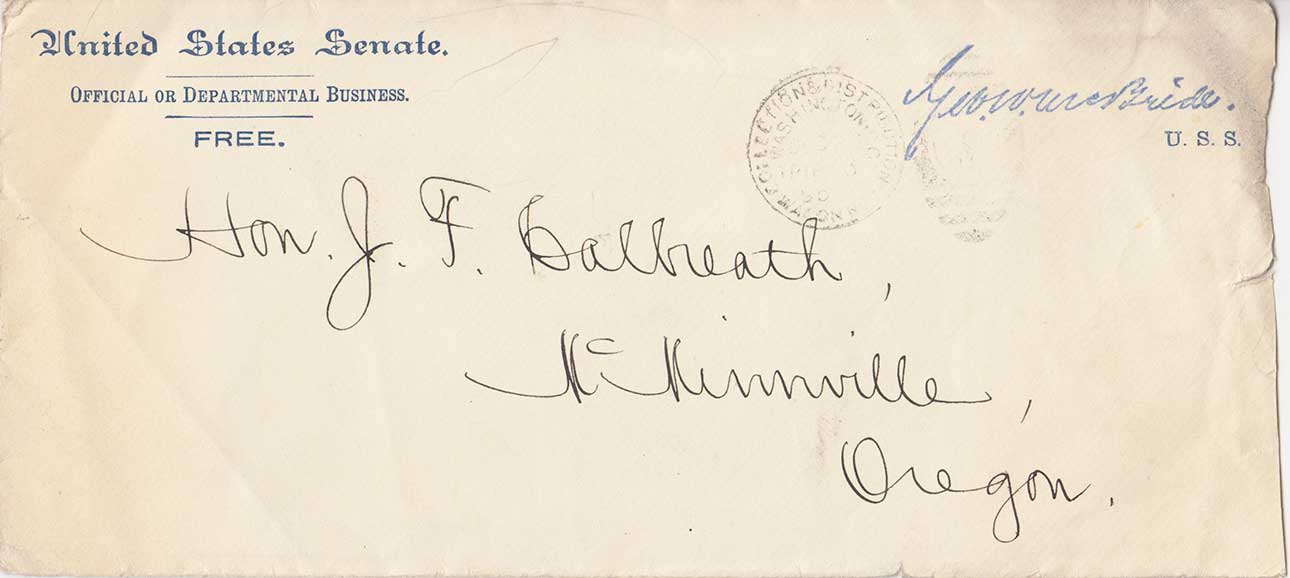 United States Senate.
OFFICIAL OR DEPARTMENTAL BUSINESS.
FREE.
Geo. W. McBride.
U. S. S.
COLLECTION & DISTRIBUTION
WASHINGTON
WAGON
Hon. J. F. Calbreath,
Mc Minnville,
Oregon.